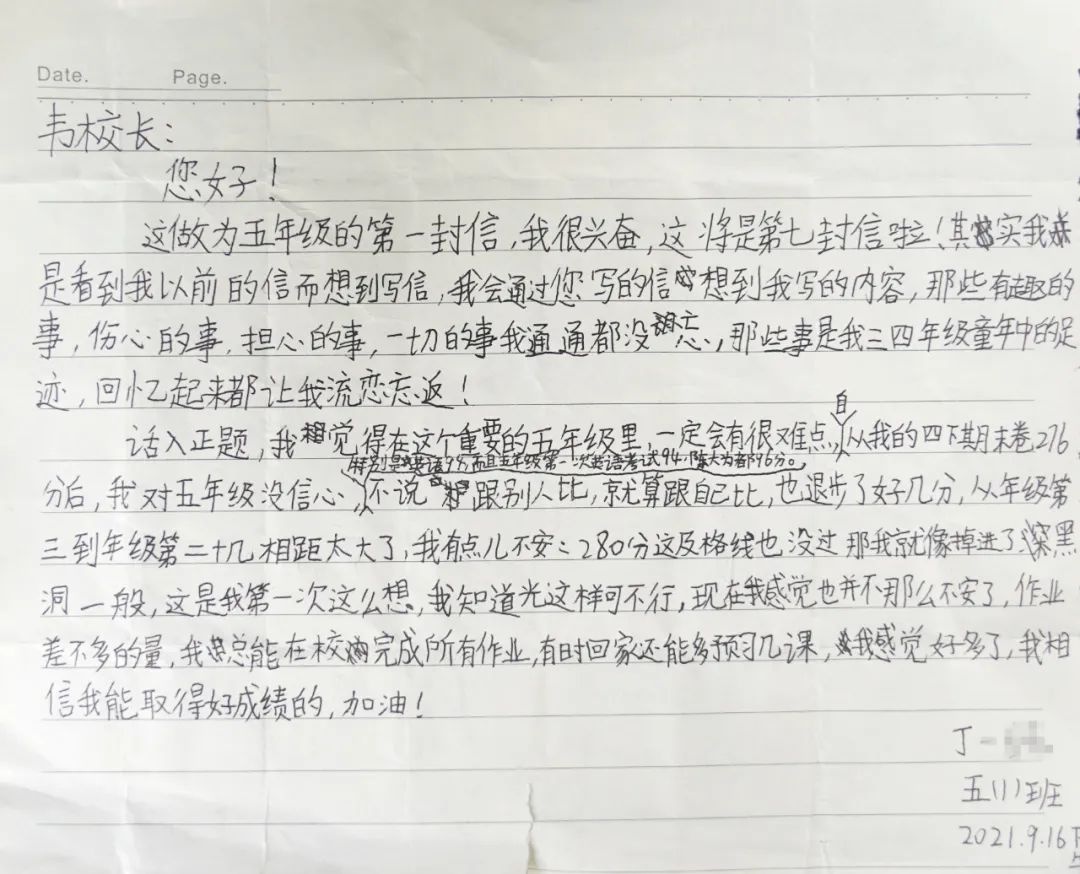 Date. Page.
韦校长：
您好！
这做为五年级的第一封信，我很兴奋，这将是第七封信啦！其实我
是看到我以前的信而想到写信，我会通过您写的信想到我写的内容，那些有趣的
事，伤心的事，担心的事，一切的事我通通都没忘，那些事是我三四年级童年中的足
迹，回忆起来都让我流恋忘返！
自
话入正题，我觉得在这个重要的五年级里，一定会有很难点，从我的四下期末卷276
特别是英语98，而且五年级第一次英语考试94，陈大为都96分。
分后，我对五年级没信心，不说跟别人比，就算跟自己比，也退步了好几分，从年级第
三到年级第二十几相距太大了，我有点儿不安：280分这及格线也没过那我就像掉进了深黑
洞一般，这是我第一次这么想，我知道光这样可不行，现在我感觉也并不那么不安了，作业
差不多的量，我总能在校内完成所有作业，有时回家还能多预习几课，我感觉好多了，我相
信我能取得好成绩的，加油！
丁一
五(1)班
2021.9.16